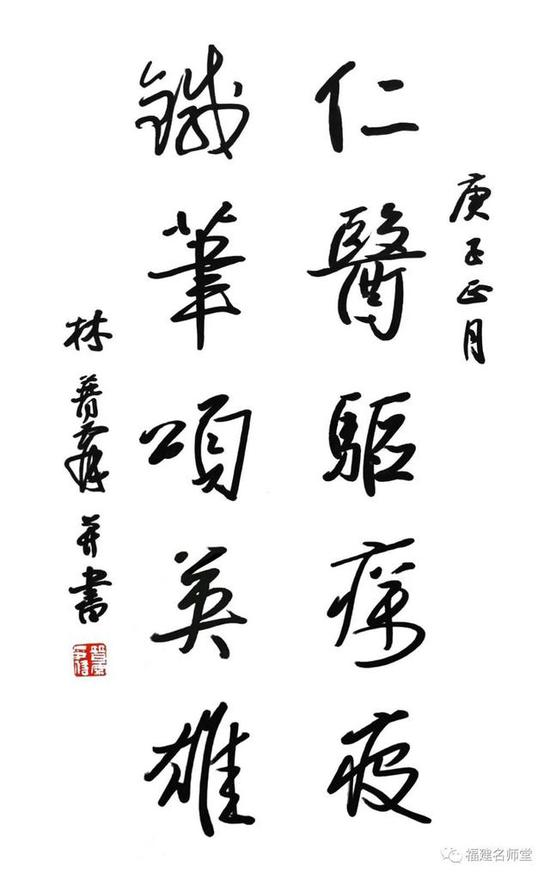 庚子正月
仁醫驅疠疫
鐵筆頌英雄
林 并書
福建名师堂